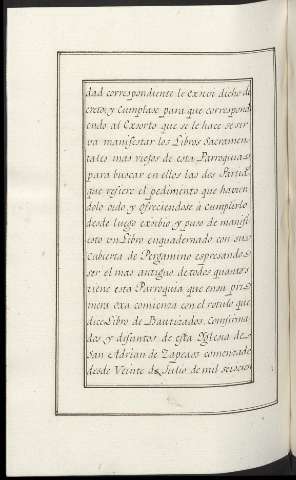 dad correspondiente le exhivi dicho de
creto, y Cumplase para que correspond
endo al Exsorto que se le hace se sir
va manifestar los Libros Sacramen
tales mas viejos de esta Parroquia
para buscar en ellos las dos Partid.s
que refiere el pedimento que havien
dolo oido y ofreciendose à cumplirlo
desde luego exsivio y puso de manifi
esto un Libro enquadernado con su
Cubierta de Pergamino espresando
ser el mas antiguo de todos quantos
tiene esta Parroquia que en su pri
mera oxa comienza con el rotulo que
dice Libro de Bautizados, Confirma
dos y difuntos de esta Iglesia de
San Adrian de Zapeaos comenzado
desde Veinte de Julio de mil seiscien